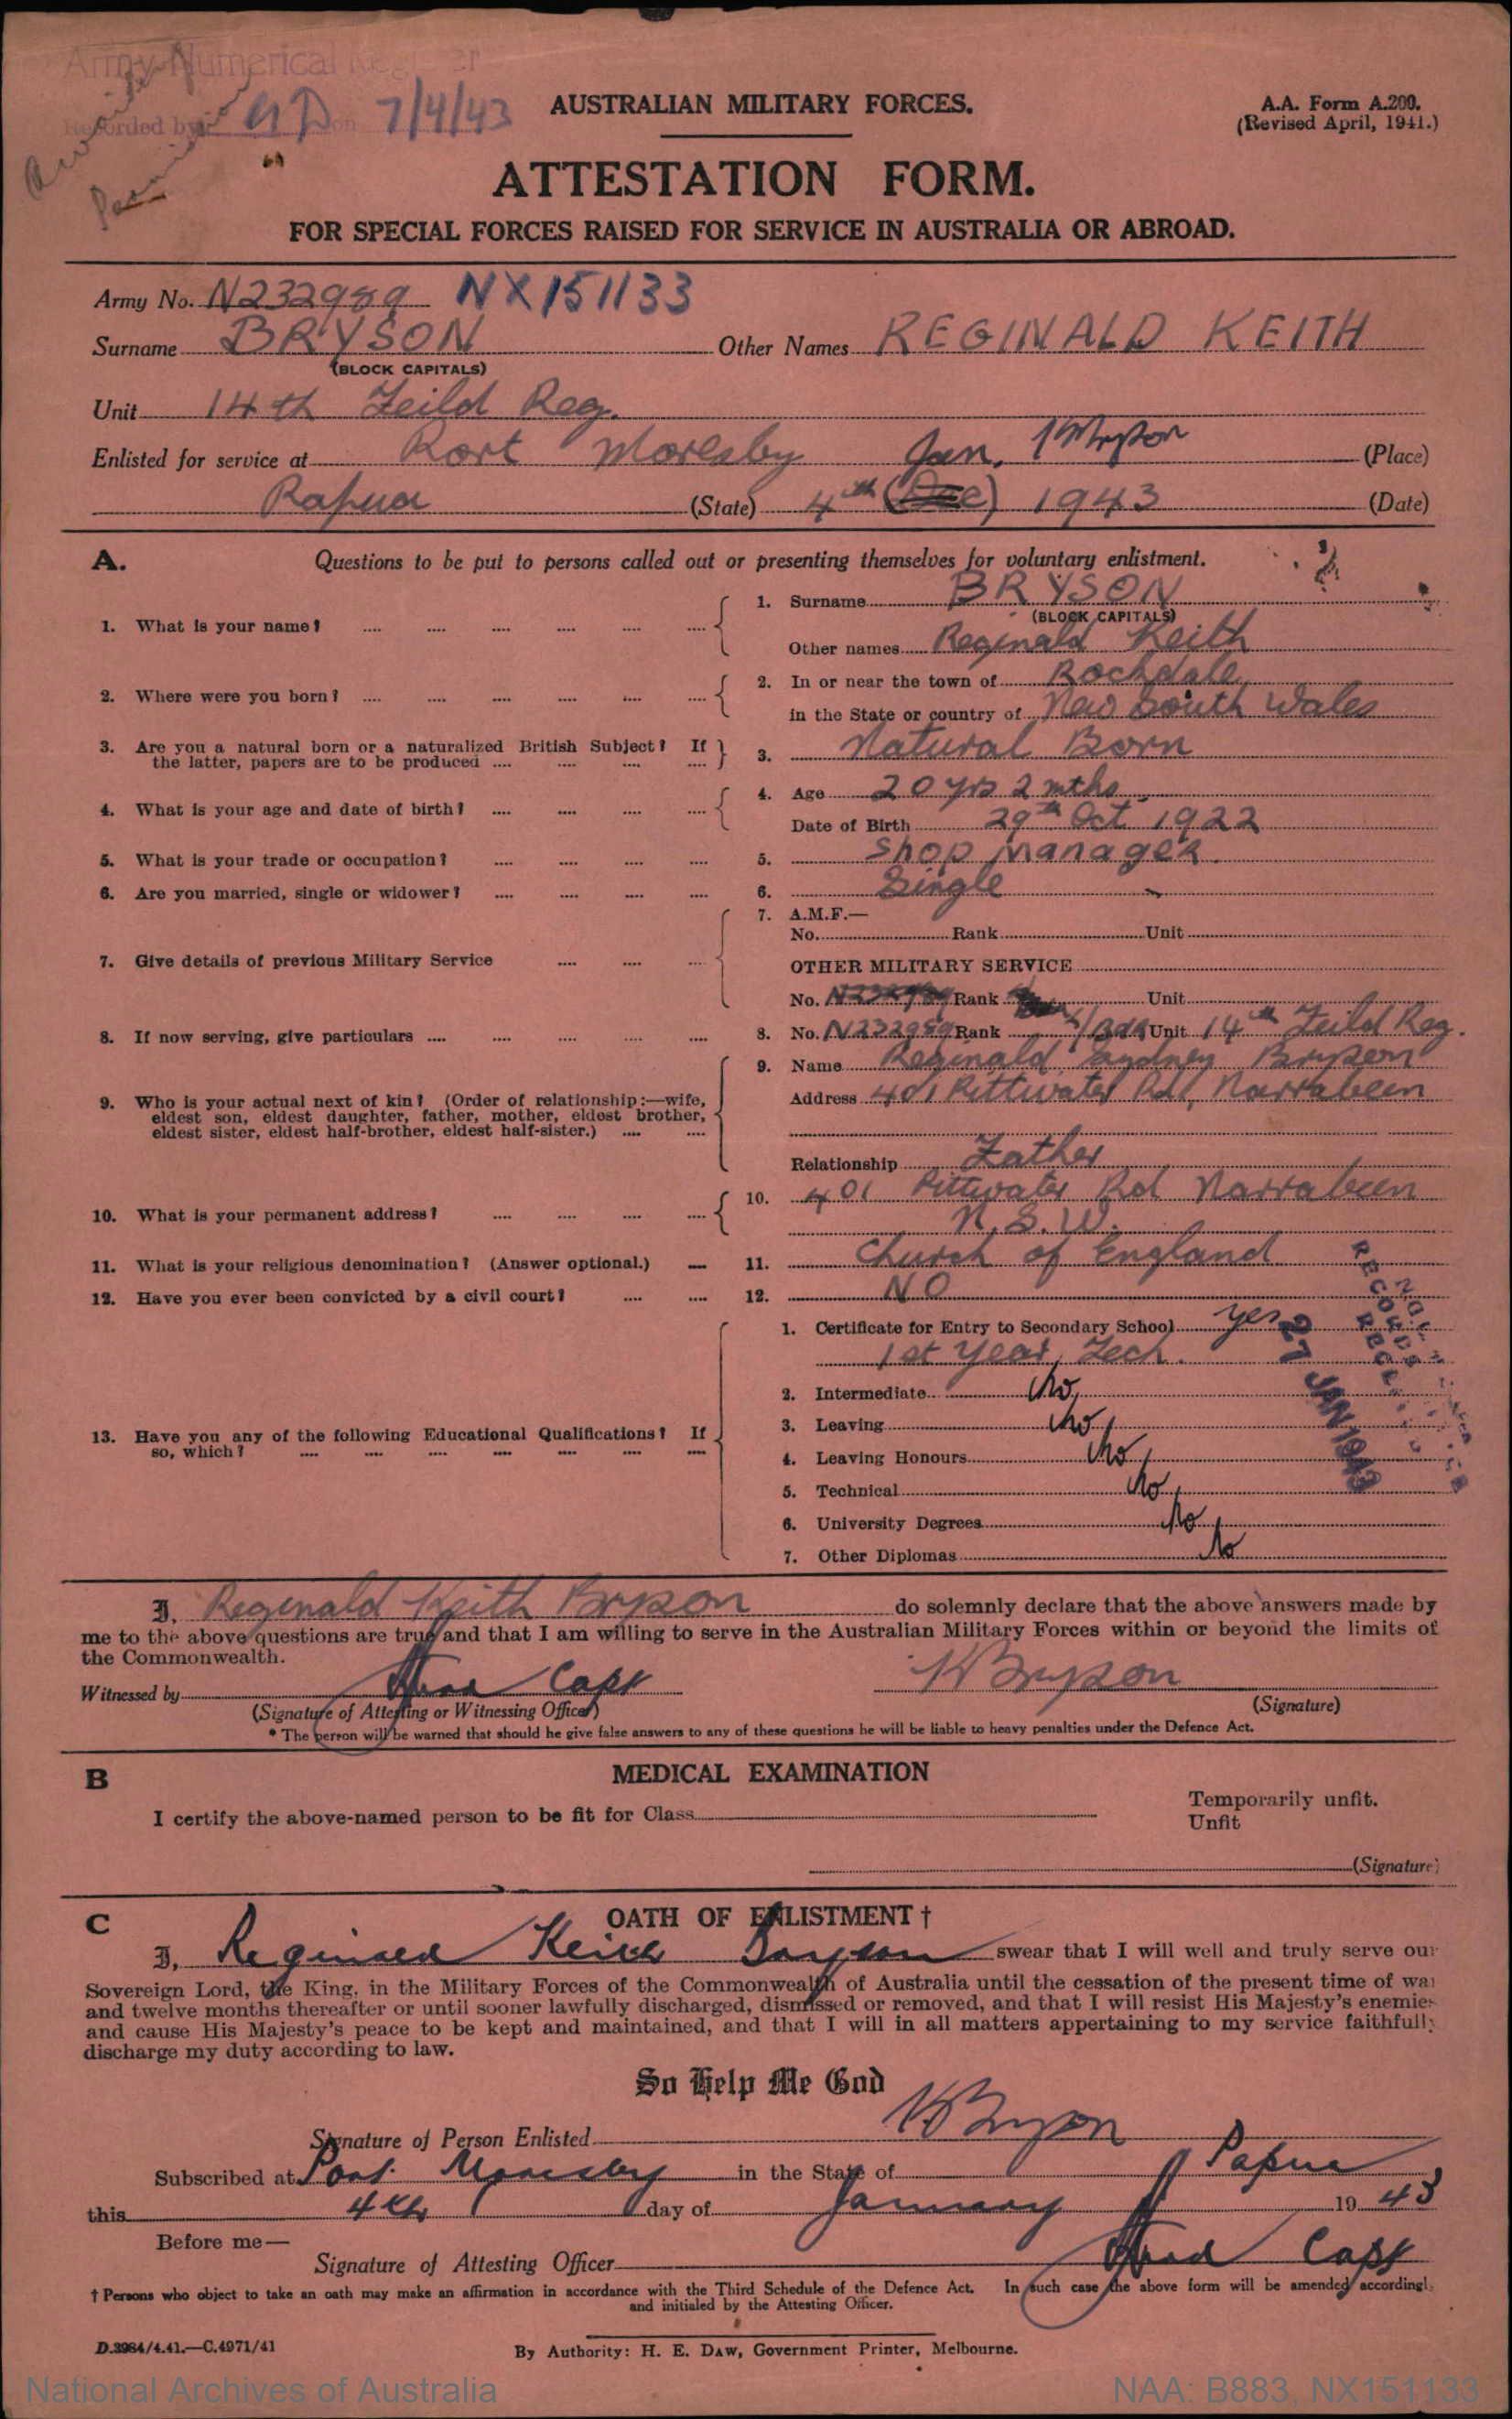 Army Numerical Register
Recorded by on 7/4/43
AUSTRALIAN MILITARY FORCES.
A.A. Form A.200.
(Revised April, 1941.)
ATTESTATION FORM.
FOR SPECIAL FORCES RAISED FOR SERVICE IN AUSTRALIA OR ABROAD.
Army No. N232989 NX151133
Surname BRYSON Other Names REGINALD KEITH
(BLOCK CAPITALS)
Unit 14th Feild Reg.
Enlisted for service at Port Moresby Jan. KBryson (Place)
Papua (State) 4th (Dec) 1943 (Date)
A. Questions to be put to persons called out or presenting themselves for voluntary enlistment.
1. What is your name? 1. Surname BRYSON
(BLOCK CAPITALS)
Other names Reginald Keith
2. Where were you born? 2. In or near the town of Rochdale
in the State or country of New South Wales
3. Are you a natural born or a naturalized British Subject? If
the latter, papers are to be produced 3. Natural Born
4. What is your age and date of birth? 4. Age 20 yrs 2 mths
Date of Birth 29th Oct 1922
5. What is your trade or occupation? 5. Shop Manager.
6. Are you married, single or widower? 6. Single
7. Give details of previous Military Service 7. A.M.F.—
No. Rank Unit
OTHER MILITARY SERVICE
No. N232989 Rank Unit
8. If now serving, give particulars 8. No. N232989 Rank L/Bdr Unit 14th Feild Reg.
9. Who is your actual next of kin? (Order of relationship:—wife,
eldest son, eldest daughter, father, mother, eldest brother,
eldest sister, eldest half-brother, eldest half-sister.)
9. Name Reginald Sydney Bryson
Address 401 Pittwater Rd, Narrabeen
Relationship Father
10. What is your permanent address? 10. 401 Pittwater Rd Narrabeen
N.S.W.
11. What is your religious denomination? (Answer optional.) 11. Church of England
12. Have you ever been convicted by a civil court? 12. NO
13. Have you any of the following Educational Qualifications? If
so, which?
1. Certificate for Entry to Secondary School yes
1st Year, Tech.
2. Intermediate No
3. Leaving No
4. Leaving Honours No
5. Technical No
6. University Degrees No
7. Other Diplomas No
27 JAN 1943
I, Reginald Keith Bryson do solemnly declare that the above answers made by
me to the above questions are true and that I am willing to serve in the Australian Military Forces within or beyond the limits of
the Commonwealth.
Witnessed by Capt KBryson
(Signature of Attesting or Witnessing Officer) (Signature)
* The person will be warned that should he give false answers to any of these questions he will be liable to heavy penalties under the Defence Act.
B MEDICAL EXAMINATION
I certify the above-named person to be fit for Class
Temporarily unfit.
Unfit
(Signature)
C OATH OF ENLISTMENT †
I, Reginald Keith Bryson swear that I will well and truly serve our
Sovereign Lord, the King, in the Military Forces of the Commonwealth of Australia until the cessation of the present time of war
and twelve months thereafter or until sooner lawfully discharged, dismissed or removed, and that I will resist His Majesty's enemies
and cause His Majesty's peace to be kept and maintained, and that I will in all matters appertaining to my service faithfully
discharge my duty according to law.
So Help Me God
Signature of Person Enlisted KBryson
Subscribed at Port Moresby in the State of Papua
this 4th day of January 1943
Before me—
Signature of Attesting Officer Capt
† Persons who object to take an oath may make an affirmation in accordance with the Third Schedule of the Defence Act. In such case the above form will be amended accordingly
and initialed by the Attesting Officer.
D.3984/4.41.—C.4971/41
By Authority: H. E. DAW, Government Printer, Melbourne.
National Archives of Australia
NAA: B883, NX151133